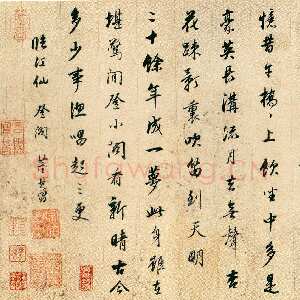 憶昔午橋〻上飲坐中多是
豪英長溝流月去無聲杏
花疎影裏吹笛到天明
二十餘年成一夢此身雖在
堪驚閒登小閣看新晴古今
多少事漁唱起三更
臨江仙 登閣 董其昌